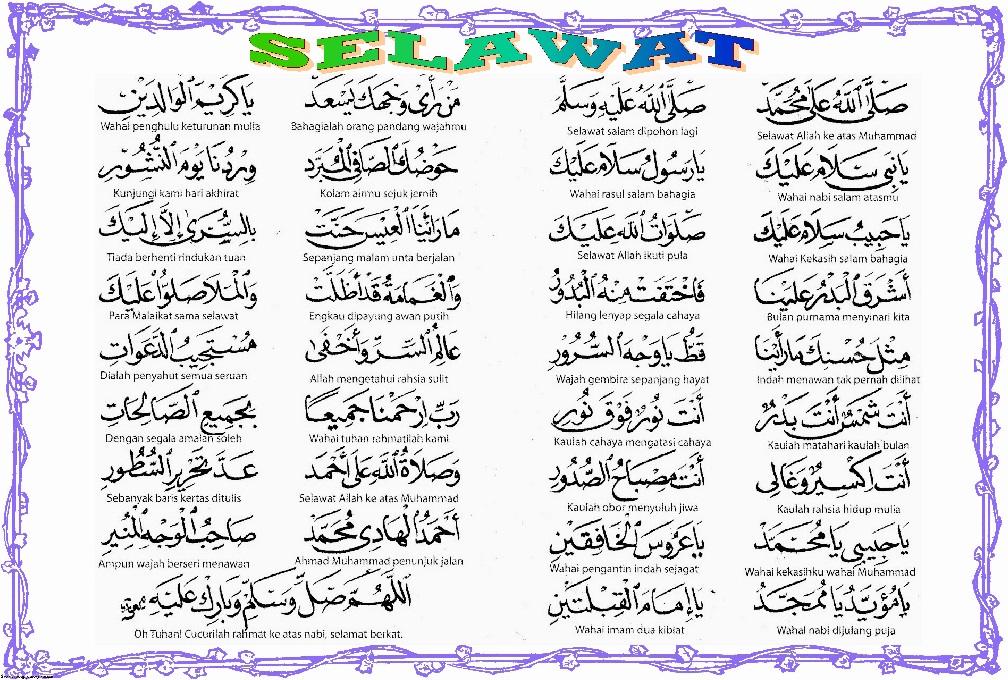 SELAWAT
صَلَّى اللهُ عَلَى مُحَمَّدْ
Selawat Allah ke atas Muhammad
صَلَّى اللهُ عَلَيْهِ وَسَلَّمْ
Selawat salam dipohon lagi
يَا نَبِي سَلَامْ عَلَيْكَ
Wahai nabi salam atasmu
يَا رَسُولْ سَلَامْ عَلَيْكَ
Wahai rasul salam bahagia
يَا حَبِيبْ سَلَامْ عَلَيْكَ
Wahai Kekasih salam bahagia
صَلَوَاتُ اللهْ عَلَيْكَ
Selawat Allah ikuti pula
أَشْرَقَ الْبَدْرُ عَلَيْنَا
Bulan purnama menyinari kita
فَاخْتَفَتْ مِنْهُ الْبُدُورُ
Hilang lenyap segala cahaya
مِثْلَ حُسْنِكْ مَا رَأَيْنَا
Indah menawan tak pernah dilihat
قَطُّ يَا وَجْهَ السُّرُورِ
Wajah gembira sepanjang hayat
أَنْتَ شَمْسٌ أَنْتَ بَدْرٌ
Kaulah matahari kaulah bulan
أَنْتَ نُورٌ فَوْقَ نُورٍ
Kaulah cahaya mengatasi cahaya
أَنْتَ اِكْسِيرٌ وَغَالِي
Kaulah rahsia hidup mulia
أَنْتَ مِصْبَاحُ الصُّدُورِ
Kaulah obor menyuluh jiwa
يَا حَبِيبِي يَا مُحَمَّدْ
Wahai kekasihku wahai Muhammad
يَا عَرُوسَ الْخَافِقَيْنِ
Wahai pengantin indah sejagat
يَا مُؤَيَّدْ يَا مُمَجَّدْ
Wahai nabi dijulang puja
يَا إِمَامَ الْقِبْلَتَيْنِ
Wahai imam dua kiblat
مَنْ رَأَى وَجْهَكَ يَسْعَدْ
Bahagialah orang pandang wajahmu
يَا كَرِيمَ الْوَالِدَيْنِ
Wahai penghulu keturunan mulia
حَوْضُكَ الصَّافِي الْمُبَرَّدْ
Kolam airmu sejuk jernih
وِرْدُنَا يَوْمَ النُّشُورِ
Kunjungi kami hari akhirat
مَا رَأَيْنَا الْعِيسَ حَنَّتْ
Sepanjang malam unta berjalan
بِالسُّرَى إِلَّا إِلَيْكَ
Tiada berhenti rindukan tuan
وَالْغَمَامَةْ قَدْ أَظَلَّتْ
Engkau dipayung awan putih
وَالْمَلَا صَلُّوا عَلَيْكَ
Para Malaikat sama selawat
عَالِمُ السِّرِّ وَأَخْفَى
Allah mengetahui rahsia sulit
مُسْتَجِيبُ الدَّعَوَاتِ
Dialah penyahut semua seruan
رَبِّ ارْحَمْنَا جَمِيعًا
Wahai tuhan rahmatilah kami
بِجَمِيعِ الصَّالِحَاتِ
Dengan segala amalan soleh
وَصَلَاةُ اللهِ عَلَى أَحْمَدْ
Selawat Allah ke atas Muhammad
عَدَّ تَحْرِيرِ السُّطُورِ
Sebanyak baris kertas ditulis
أَحْمَدُ الْهَادِي مُحَمَّدْ
Ahmad Muhammad penunjuk jalan
صَاحِبُ الْوَجْهِ الْمُنِيرِ
Ampun wajah berseri menawan
اللَّهُمَّ صَلِّ وَسَلِّمْ وَبَارِكْ عَلَيْهِ
Oh Tuhan! Cucurilah rahmat ke atas nabi, selamat berkat.